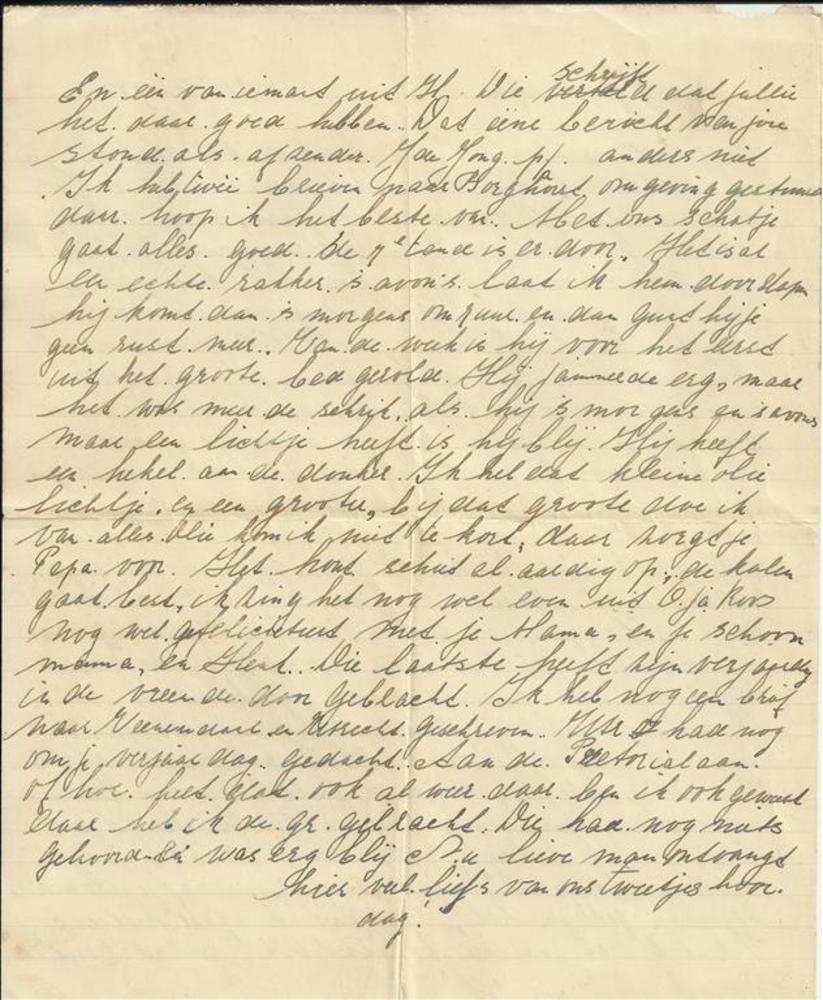 En één van iemant uit H. Die schrijft verteld dat jullie
het daar goed hebben. Dat eene bericht van jou
stond als afzender. J de Jong. p/. anders niet
Ik heb twee brieven naar Borghorst omgeving gestuurd
daar hoop ik het beste van. Met ons schatje
gaat alles goed. De 7e tand is er door. Het is al
een echte rakker. 's avon's laat ik hem doorslapen
hij komt dan 's morgens om 7 uur en dan gunt hij je
geen rust meer. Van de week is hij voor het eerst
uit het groote bed gerold. Hij jammerde erg, maar
het was meer de schrik. als hij 's morgens en 's avons
maar een lichtje heeft is hij blij. Hij heeft
een hekel aan de donker. Ik heb dat kleine olie
lichtje en een groote, bij dat groote doe ik
van alles. Olie kom ik niet te kort, daar zorgt je
Papa voor. Het hout schiet al aardig op, de kolen
gaat best, ik zing het nog wel even uit O ja Koos
nog wel gefeliciteert met je Mama, en je schoon
mama, en Henk. Die laatste heeft zijn verjaardag
in de vreemde door gebracht. Ik heb nog een brief
naar Veenendaal en Utrecht geschreven. had nog
om je verjaardag gedacht. Aan de Pretorialaan.
of hoe heet dat ook al weer daar ben ik ook geweest
daar heb ik de gr. gebracht. Die had nog niets
gehoord. En was erg blij Nu lieve man ontvangt
hier veel liefs van ons tweetjes hoor.
dag!